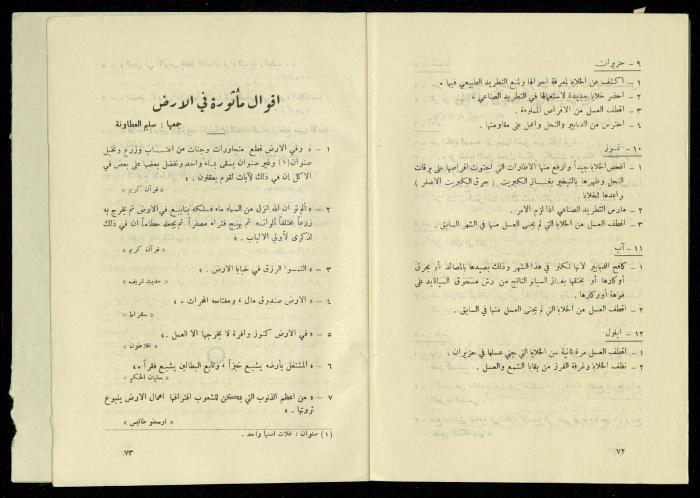 ٩ - حزيران
١ - اكشف عن الخلايا لمعرفة احوالها ولمنع التطريد الطبيعي فيها .
٢ - احضر خلايا جديدة لاستعمالها في التطريد الصناعي .
٣ - اقطف العسل من الاقراص المملوءة .
٤ - احترس من الدبابير والنحل واعمل على مقاومتها .
١٠ - تموز
١ - افحص الخلايا جيداً وارفع منها الاطارات التي احتوت اقراصها على يرقات
النحل وطهرها بالتبخير بغاز الكبريت ( حرق الكبريت الاصفر )
واعدها للخلايا .
٢ - مارس التطريد الصناعي اذا لزم الامر .
٣ - اقطف العسل من الخلايا التي لم يجنى العسل منها في الشهر السابق .
١١ - آب
١ - كافح الدبابير لانها تكثر في هذا الشهر وذلك بصيدها بالمصائد أو بحرق
أوكارها أو بخنقها بغاز السيانو الناتج من رش مسحوق السيانايد على
فوهة أوكارها .
٢ - اقطف العسل من الخلايا التي لم يجنى العسل منها في السابق .
١٢ - ايلول
١ - اقطف العسل مرة ثانية من الخلايا التي جني عسلها في حزيران .
٢ - نظف الخلايا وغرفة الفرز من بقايا الشمع والعسل .
٧٢
اقوال مأثورة في الارض
جمعها : سليم العطاونة
١ - « وفي الارض قطع متجاورات وجنات من اعناب وزرع ونخيل
صنوان(١) وغير صنوان يسقى بماء واحد ونفضل بعضها على بعض في
الاكل إن في ذلك لآيات لقوم يعقلون . »
« قرآن كريم »
٢ - « ألم تر ان الله انزل من السماء ماء فسلكه ينابيع في الارض ثم يخرج به
زرعاً مختلفاً ألوانه ثم يهيج فتراه مصفراً ثم يجعله حطاماً ان في ذلك
لذكرى لأولي الالباب . »
« قرآن كريم »
٣ - « التمسوا الرزق في خبايا الارض . »
« حديث شريف »
٤ - « الارض صندوق مال ، ومفتاحه المحراث . »
« سقراط »
٥ - « في الارض كنوز وافرة لا يخرجها الا العمل . »
« افلاطون »
٦ - « المشتغل بأرضه يشبع خبزاً ، وتابع البطالين يشبع فقراً . »
« سليمان الحكيم »
٧ - « من اعظم الذنوب التي يمكن للشعوب اقترافها اهمال الارض ينبوع
ثروتها . »
« ارسطو طاليس »
(١) صنوان : نخلات اصلها واحد .
٧٣